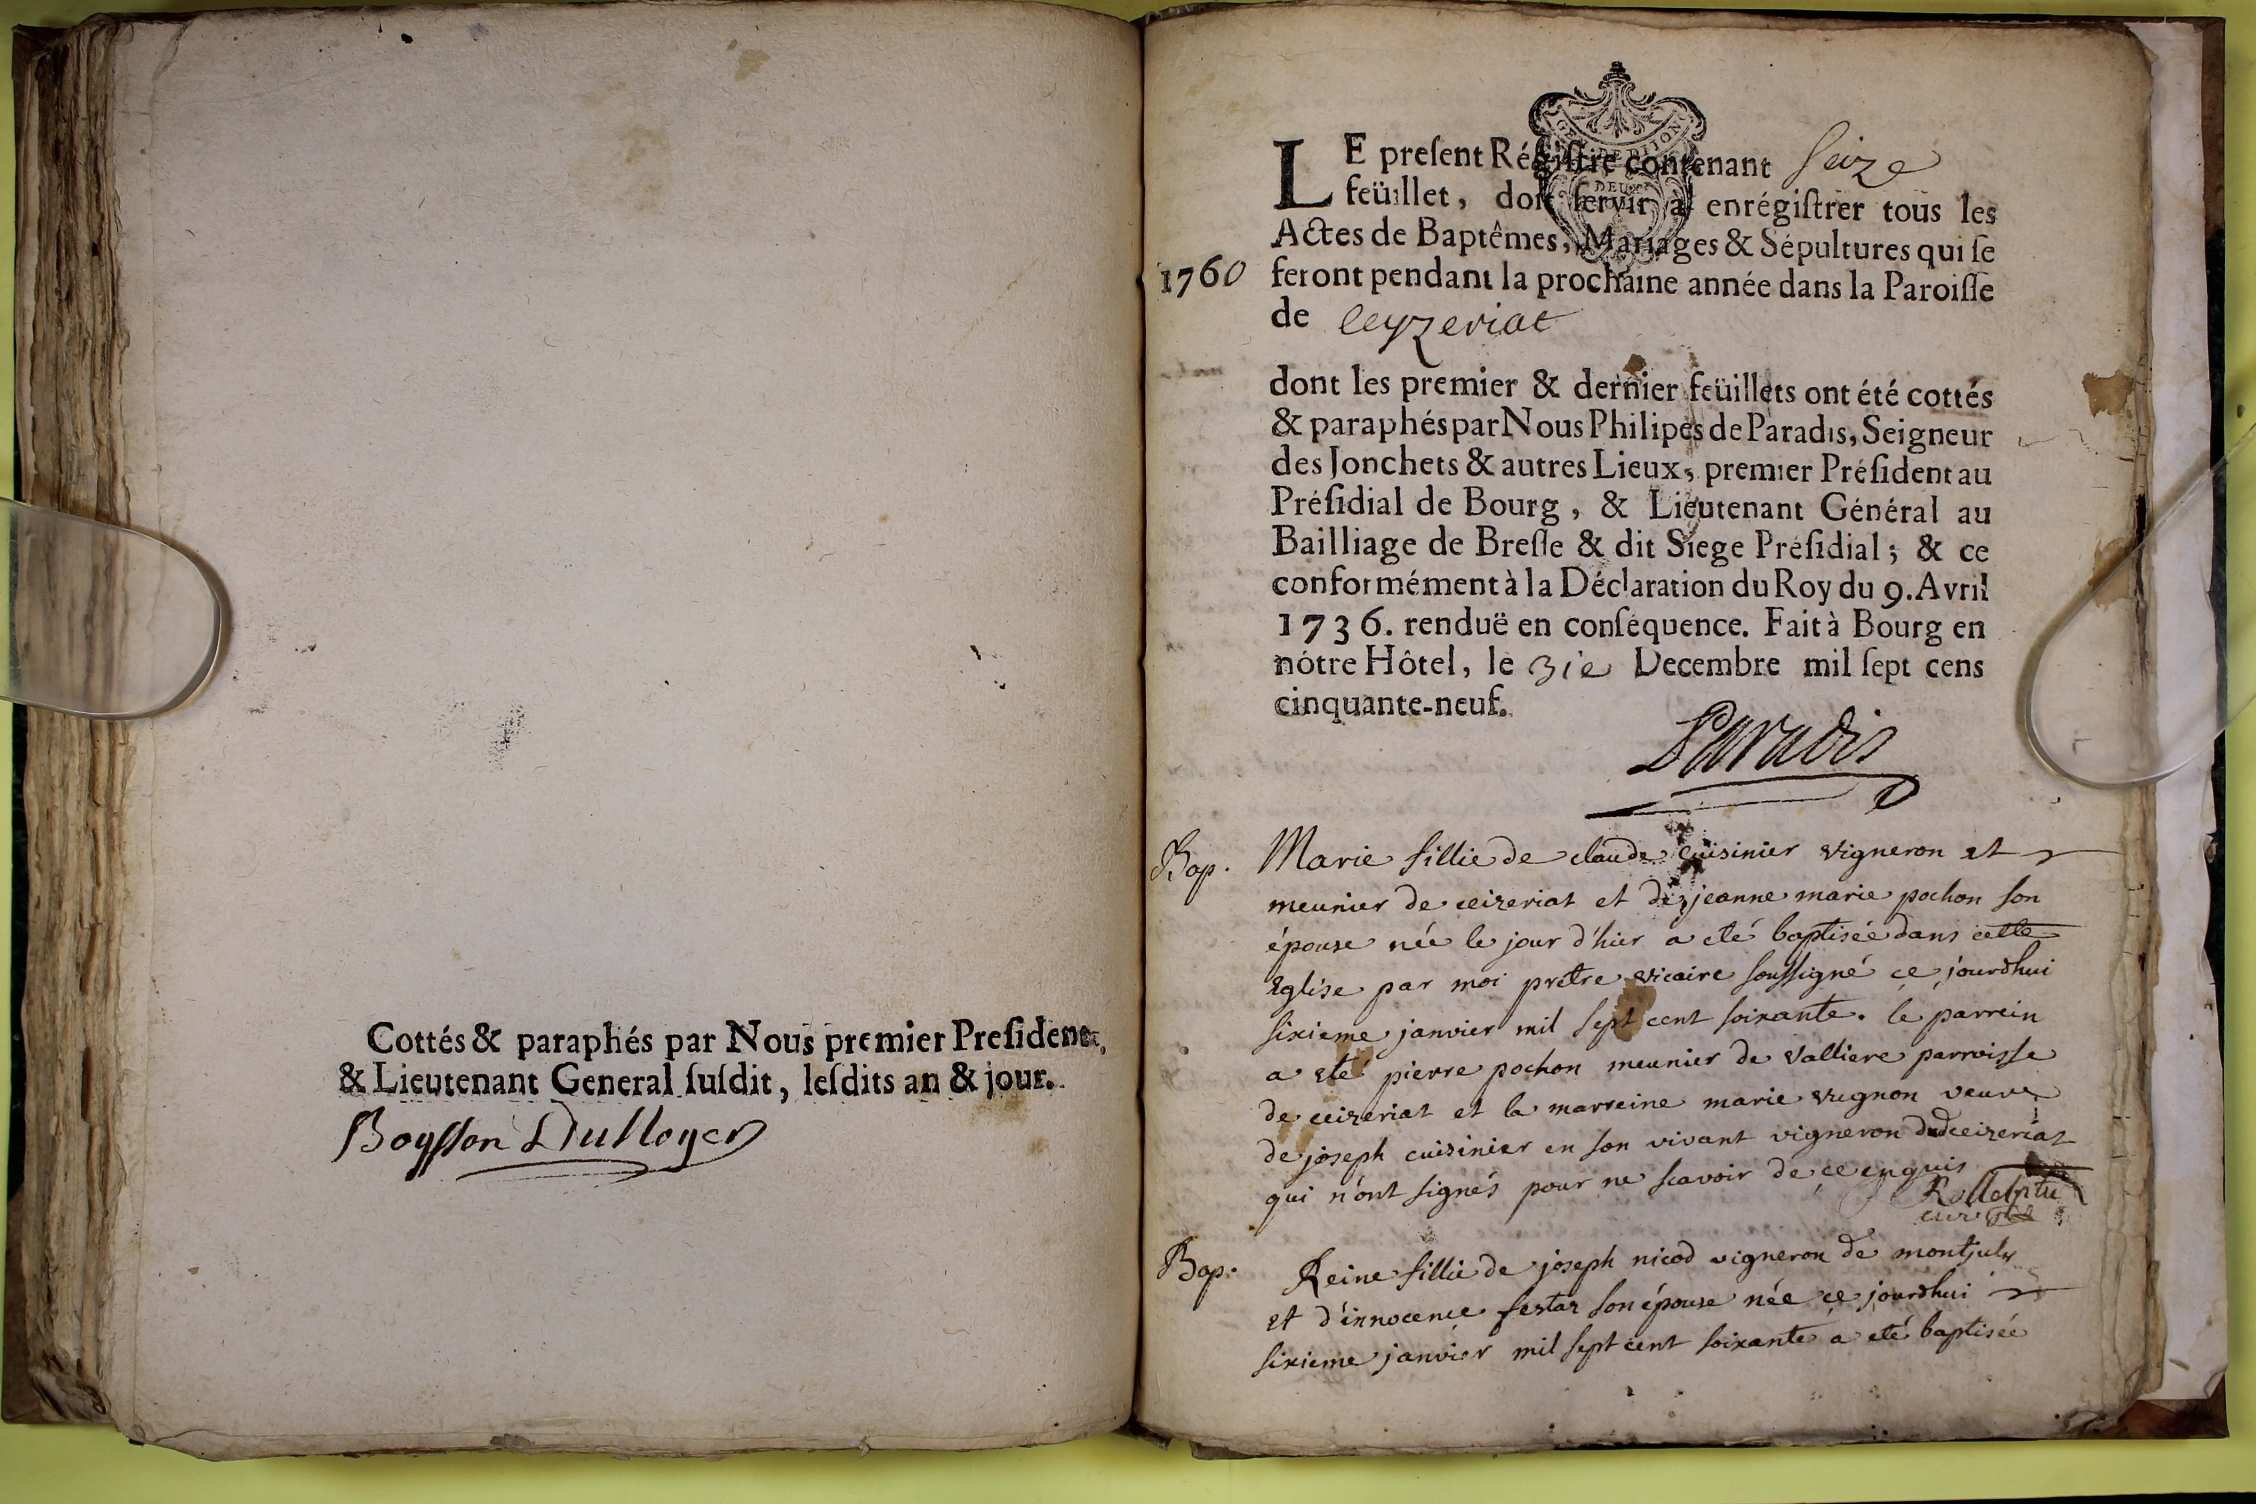 Cottés & paraphés par Nous premier President,
& Lieutenant General ſuſdit, leſdits an & jour.
Boysson Dulloyer
LE preſent Régiſtre contenant Seize
feüillet, doit ſervir à enrégiſtrer toüs les
Actes de Baptêmes, Mariages & Sépultures qui ſe
1760 feront pendant la prochaine année dans la Paroiſſe
de Ceyzeriat
dont les premier & dernier feüillets ont été cottés
& paraphés par Nous Philipes de Paradis, Seigneur
des Jonchets & autres Lieux, premier Préſident au
Préſidial de Bourg, & Lieutenant Général au
Bailliage de Breſſe & dit Siege Préſidial; & ce
conformément à la Déclaration du Roy du 9. Avril
1736. renduë en conſéquence. Fait à Bourg en
nôtre Hôtel, le 31e Decembre mil ſept cens
cinquante-neuf.
Paradis
Bap. Marie fillie de claude cuisinier vigneron et
meunier de ceizeriat et de jeanne marie pochon son
épouse née le jour d'hier a eté baptisée dans cette
Eglise par moi prêtre vicaire soussigné ce jourdhui
sixieme janvier mil sept cent soixante. le parrein
a eté pierre pochon meunier de valliere parroisse
de ceizeriat et la marreine marie vugnon veuve
de joseph cuisinier en son vivant vigneron dud ceizeriat
qui n'ont signés pour ne scavoir de ce enquis
Bap. Reine fillie de joseph nicod vigneron de montjuly
et d'innocence festaz son épouse née ce jourdhui
sixieme janvier mil sept cent soixante a eté baptisée